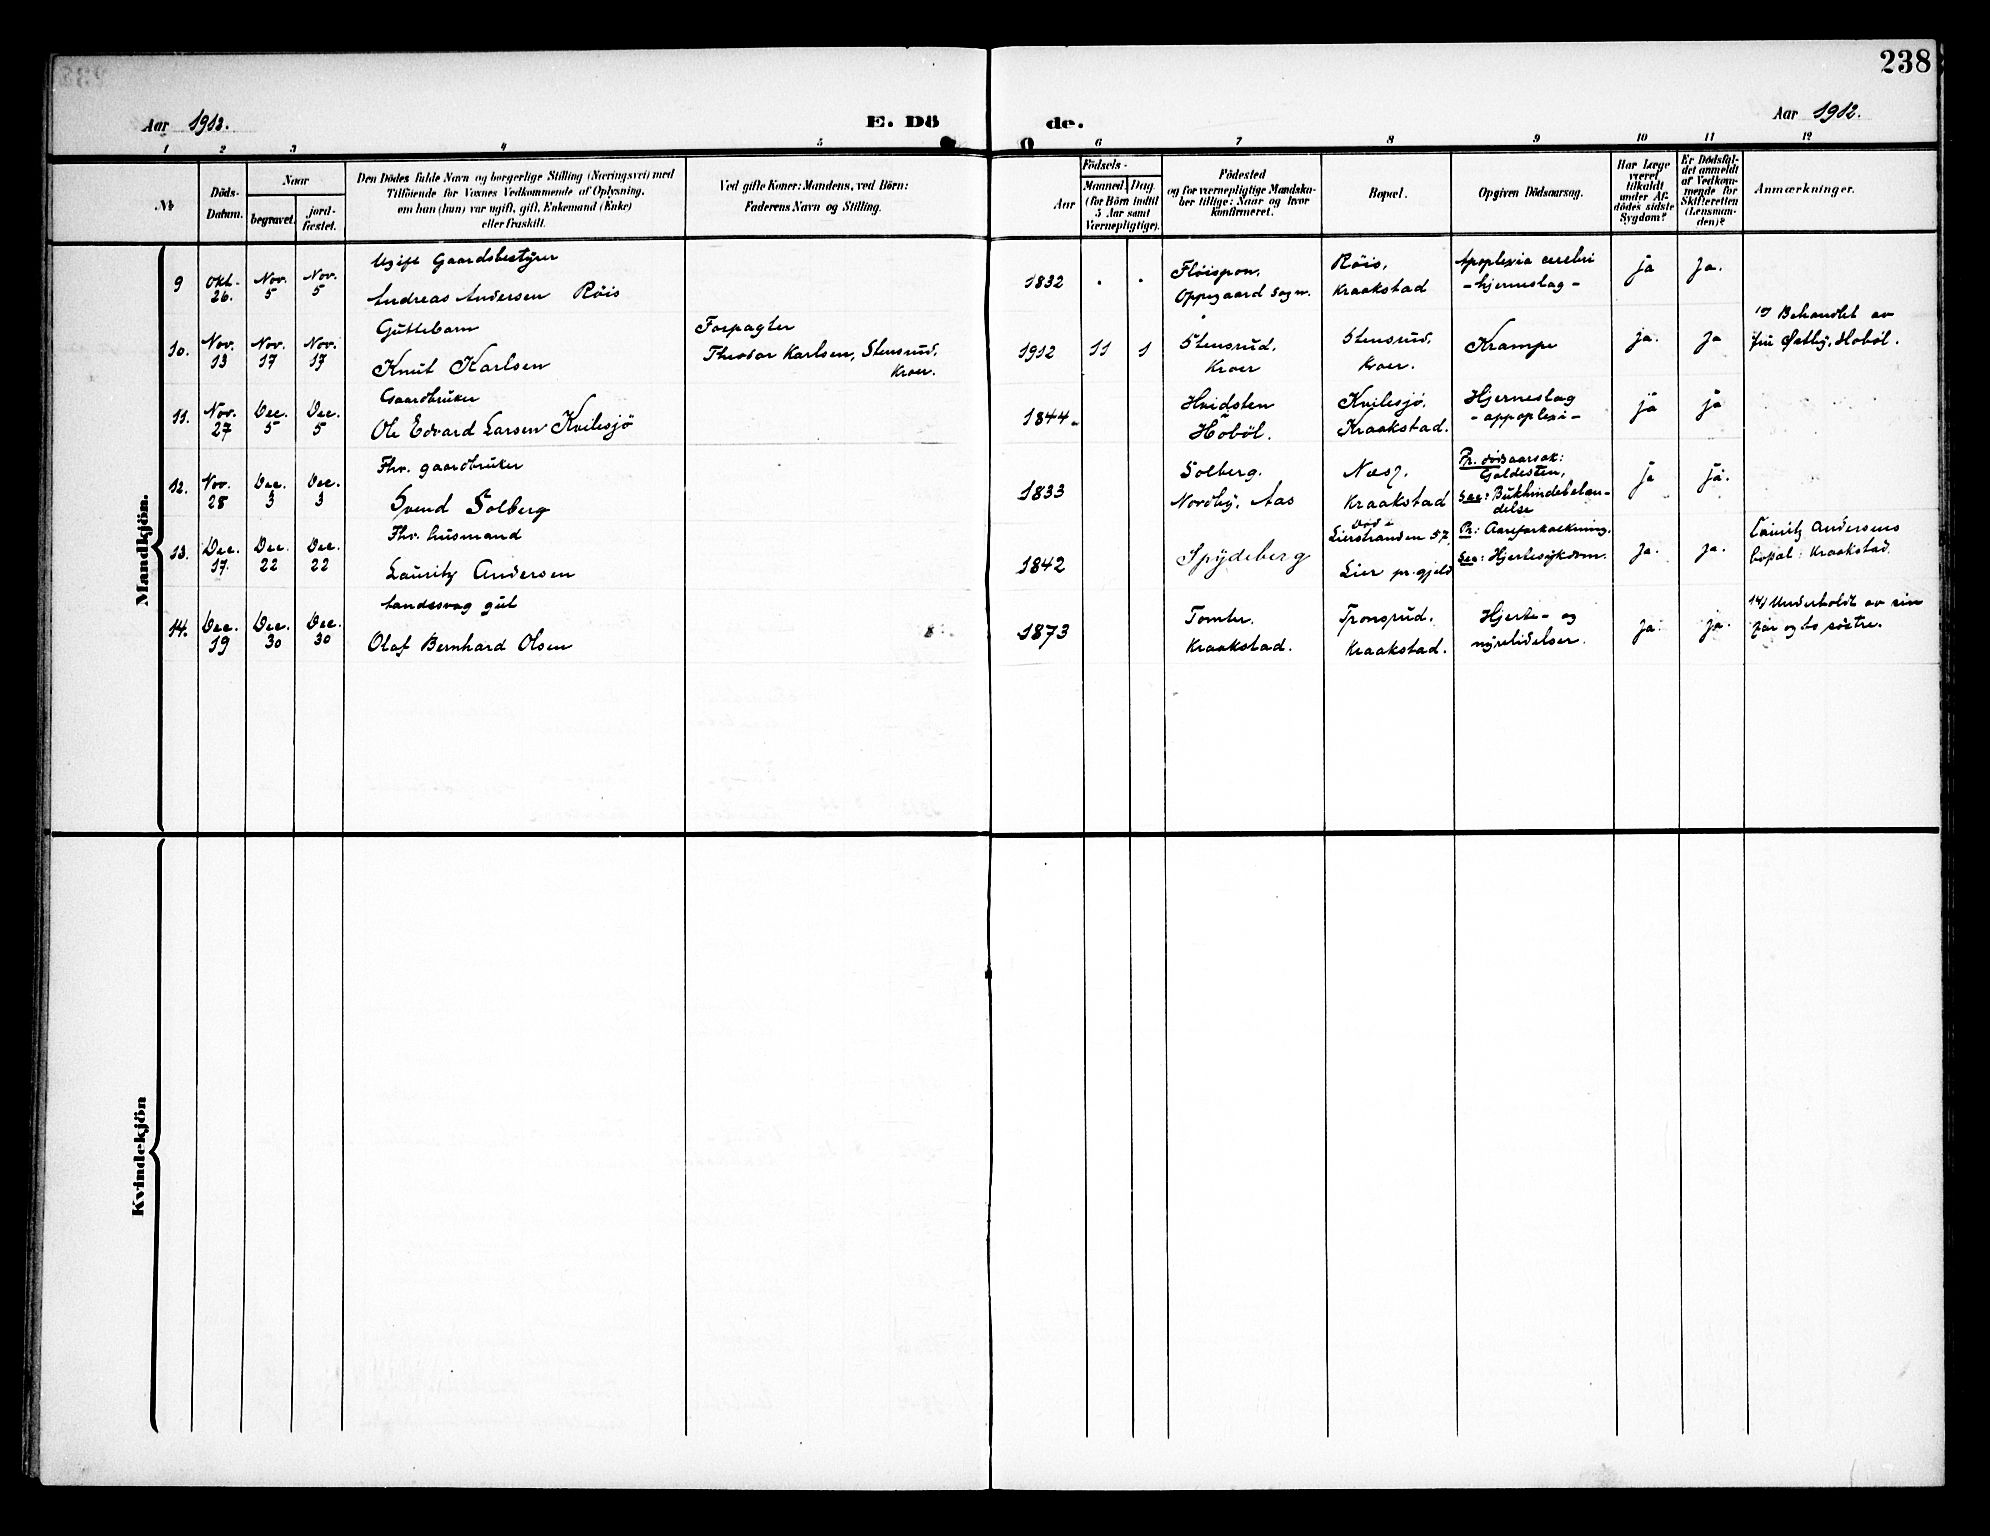 238
Aar 1912.
E. Dö
de.
Aar 1912.
1 2 3 4 5 6 7 8 9 10 11 12
№
Döds-
Datum.
Naar
begravet.
jord-
fæstet.
Den Dödes fulde Navn og borgerlige Stilling (Næringsvei) med
Tilföiende for Voxnes Vedkommende af Oplysning,
om han (hun) var ugift, gift, Enkemand (Enke)
eller fraskilt.
Ved gifte Koner: Mandens, ved Börn:
Faderens Navn og Stilling.
Födsels-
Aar
Maaned. Dag.
(for Börn indtil
5 Aar samt
Værnepligtige).
Födested
og for værnepligtige Mandska-
ber tillige: Naar og hvor
konfirmeret.
Bopæl.
Opgiven Dödsaarsag.
Har Læge
været
tilkaldt
under Af-
dödes sidste
Sygdom?
Er Dödsfal-
det anmeldt
af Vedkom-
mende for
Skifteretten
(Lensman-
den)?
Anmærkninger.
Mandkjön.
9
Okt.
26.
Nov.
5
Nov.
5
Ugift Gaardsbestyrer
Andreas Andersen Röis
1832
Flöispon,
Oppegaard sogn.
Röis,
Kraakstad
Apoplexia cerebri
- hjerneslag -
ja
Ja.
10.
Nov.
13
Nov.
17
Nov.
17
Guttebarn
Knut Karlsen
Forpagter
Theodor Karlsen, Stensrud,
Kroer.
1912
11
1
Stensrud,
Kroer
Stensrud,
Kroer.
Krampe
ja.
ja
10) Behandlet av
fru Østby, Hoböl.
11.
Nov.
27
Dec.
5
Dec.
5
Gaardbruker
Ole Edvard Larsen Kvilesjö
1844
Hvidsten
Hoböl.
Kvilesjö,
Kraakstad.
Hjerneslag
- appoplexi -
ja
ja
12.
Nov.
28
Dec.
3
Dec.
3
Fhv. gaardbruker
Svend Solberg
1833
Solberg.
Nordby, Aas
Næs,
Kraakstad
Pr. dødsaarsak:
Galdesten,
Sec: Bukhindebetæn-
delse
ja
ja.
13.
Dec.
17.
Dec.
22
Dec.
22
Fhv. husmand
Lauritz Andersen
1842
Spydeberg
Död i
Lierstranden 57,
Lier pr.gjeld
Pr: Aareforkalkning.
Sec: Hjertesykdom.
ja.
ja.
Lauritz Andersens
bopæl: Kraakstad.
14.
Dec.
19
Dec.
30
Dec.
30
Aandssvag gut
Olaf Bernhard Olsen
1873
Tomter.
Kraakstad.
Trongrud.
Kraakstad.
Hjerte- og
nyrelidelser.
ja.
ja.
14) Underholdt av sin
far og to söstre.
Kvindekjön